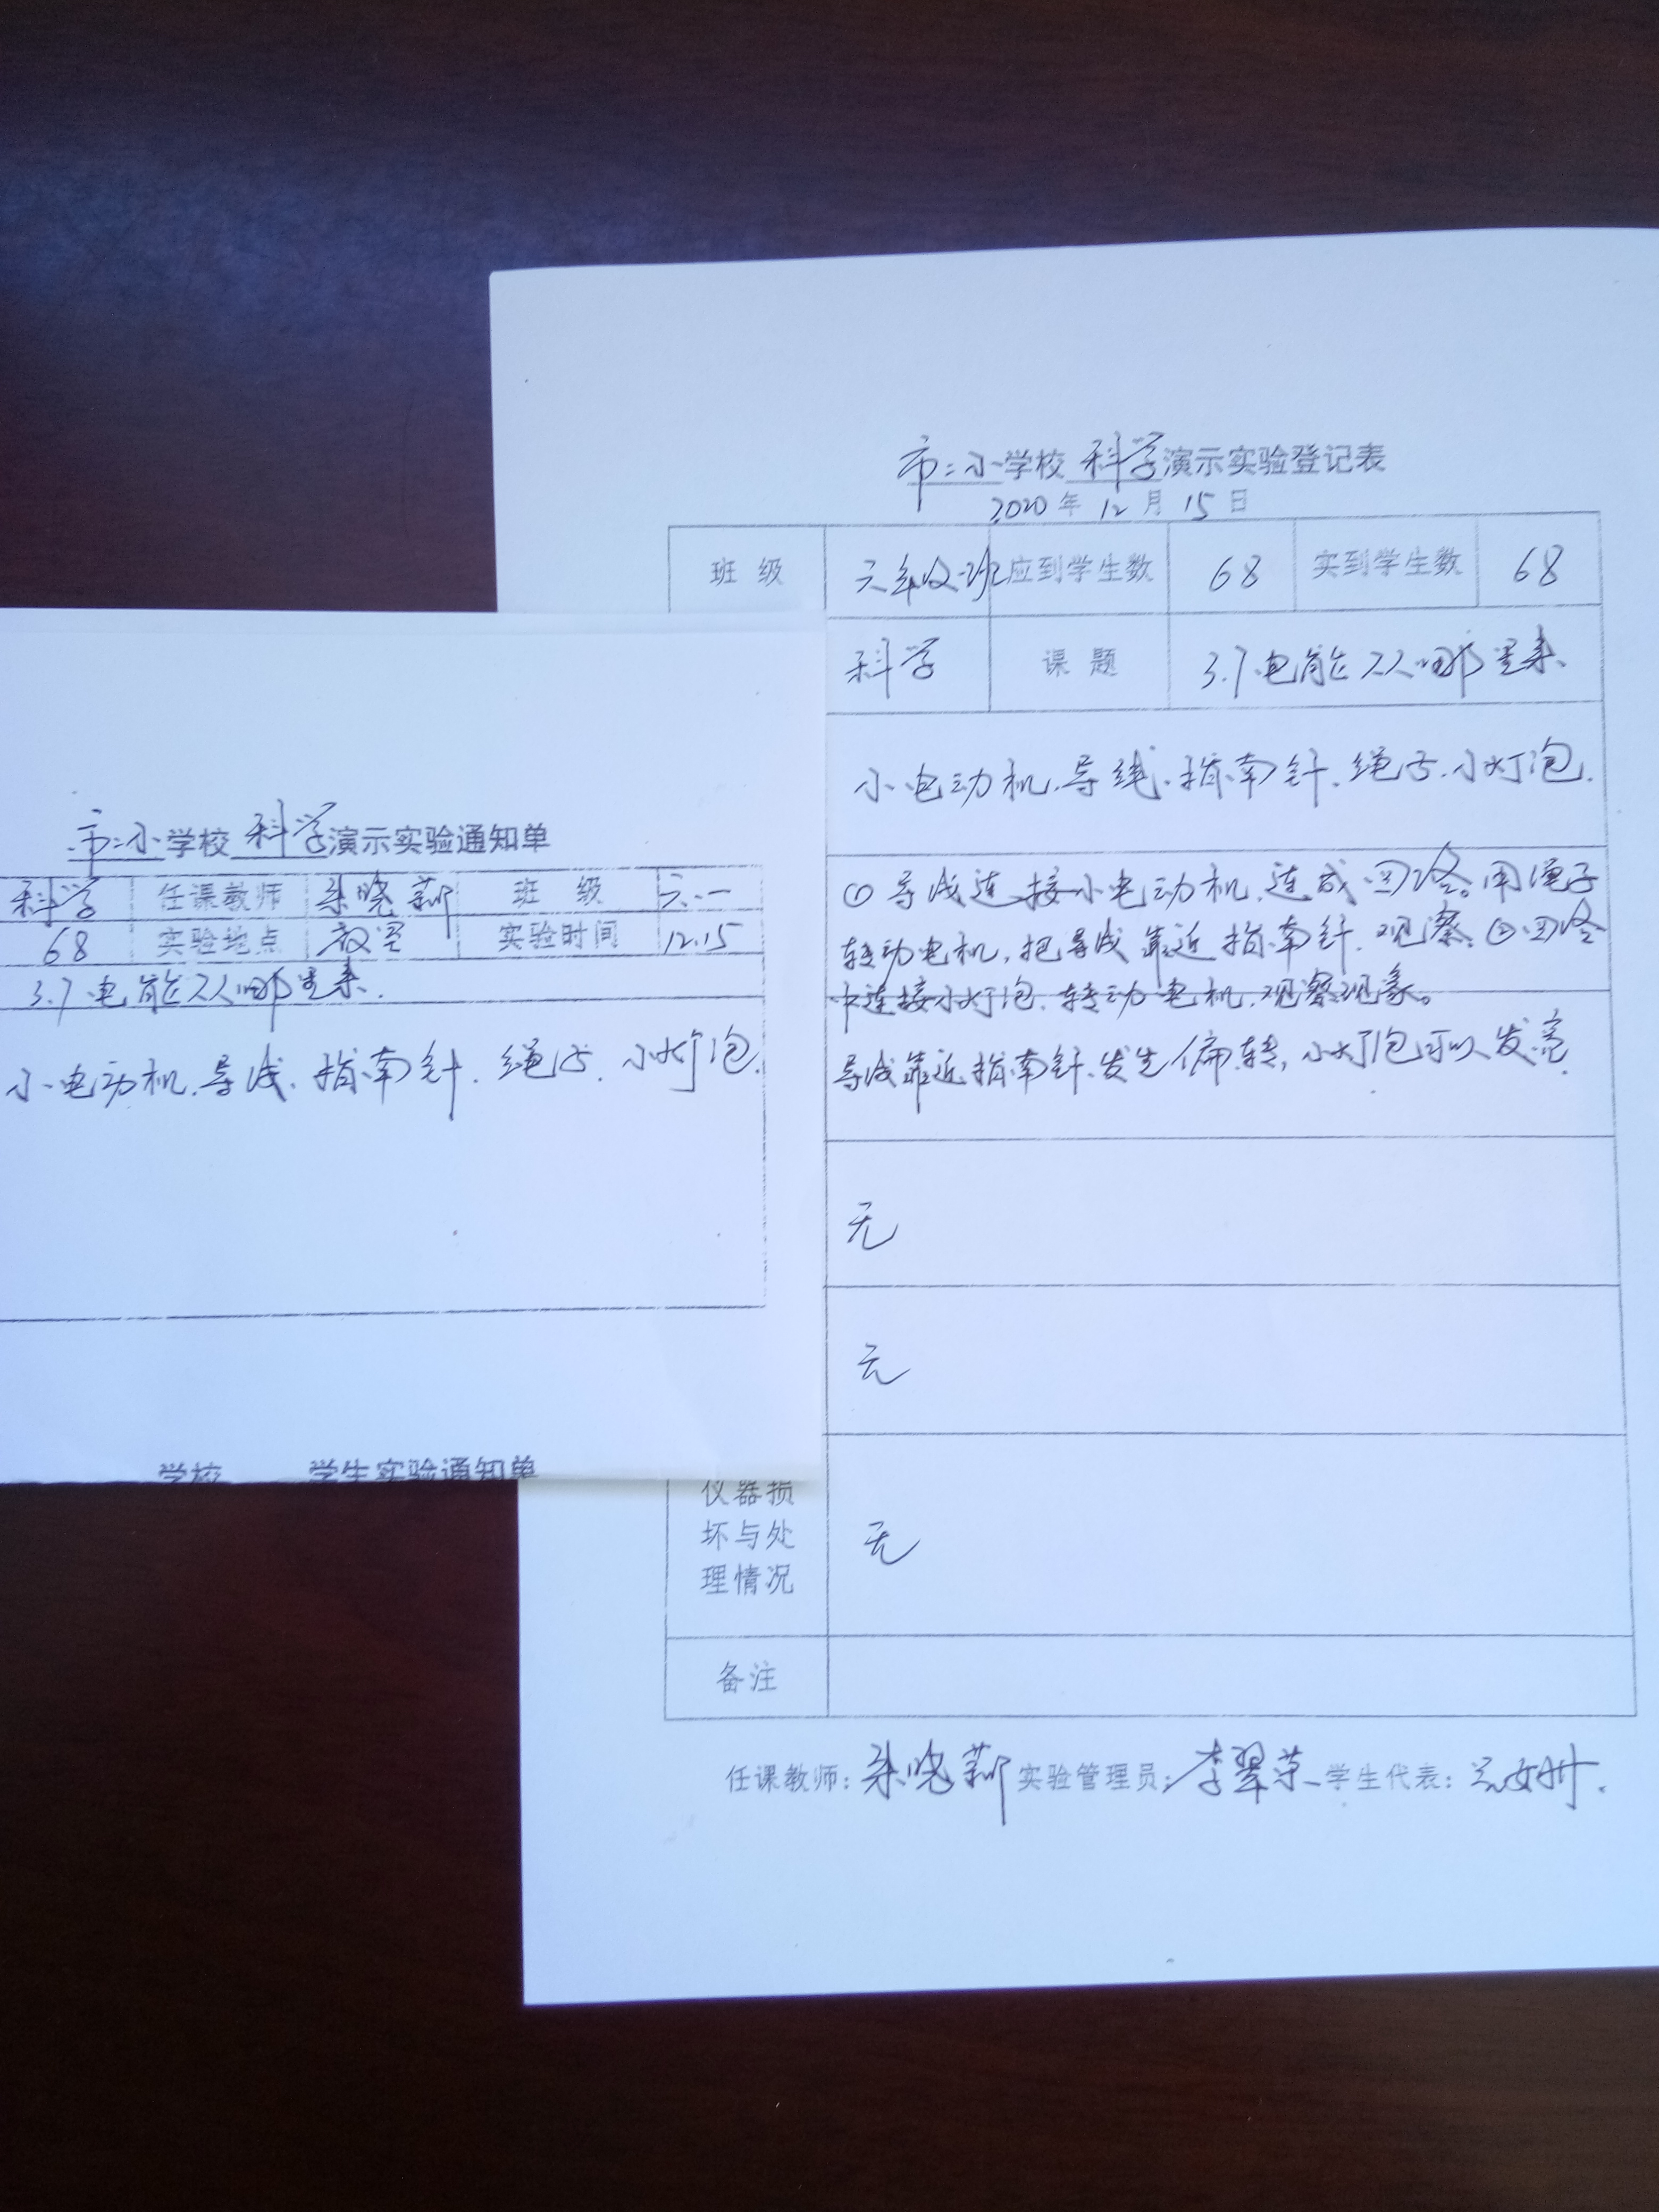 市二小学校 科学演示实验登记表
2020年 12月 15日
班 级 六年级一班 应到学生数 68 实到学生数 68
科学 课 题 3.7电能从哪里来
小电动机.导线.指南针.绳子.小灯泡.
①导线连接小电动机,连成回路。用绳子
转动电机,把导线靠近指南针.观察。②回路
中连接小灯泡.转动电机.观察现象。
导线靠近指南针.发生偏转,小灯泡可以发亮.
无
无
仪器损
坏与处
理情况
无
备注
任课教师: 晓 实验管理员: 李翠 学生代表:
市二小学校 科学演示实验通知单
科学 任课教师 晓 班 级 六.一
68 实验地点 教室 实验时间 12.15
3.7电能从哪里来.
小电动机.导线.指南针.绳子.小灯泡.
学校 学生实验通知单